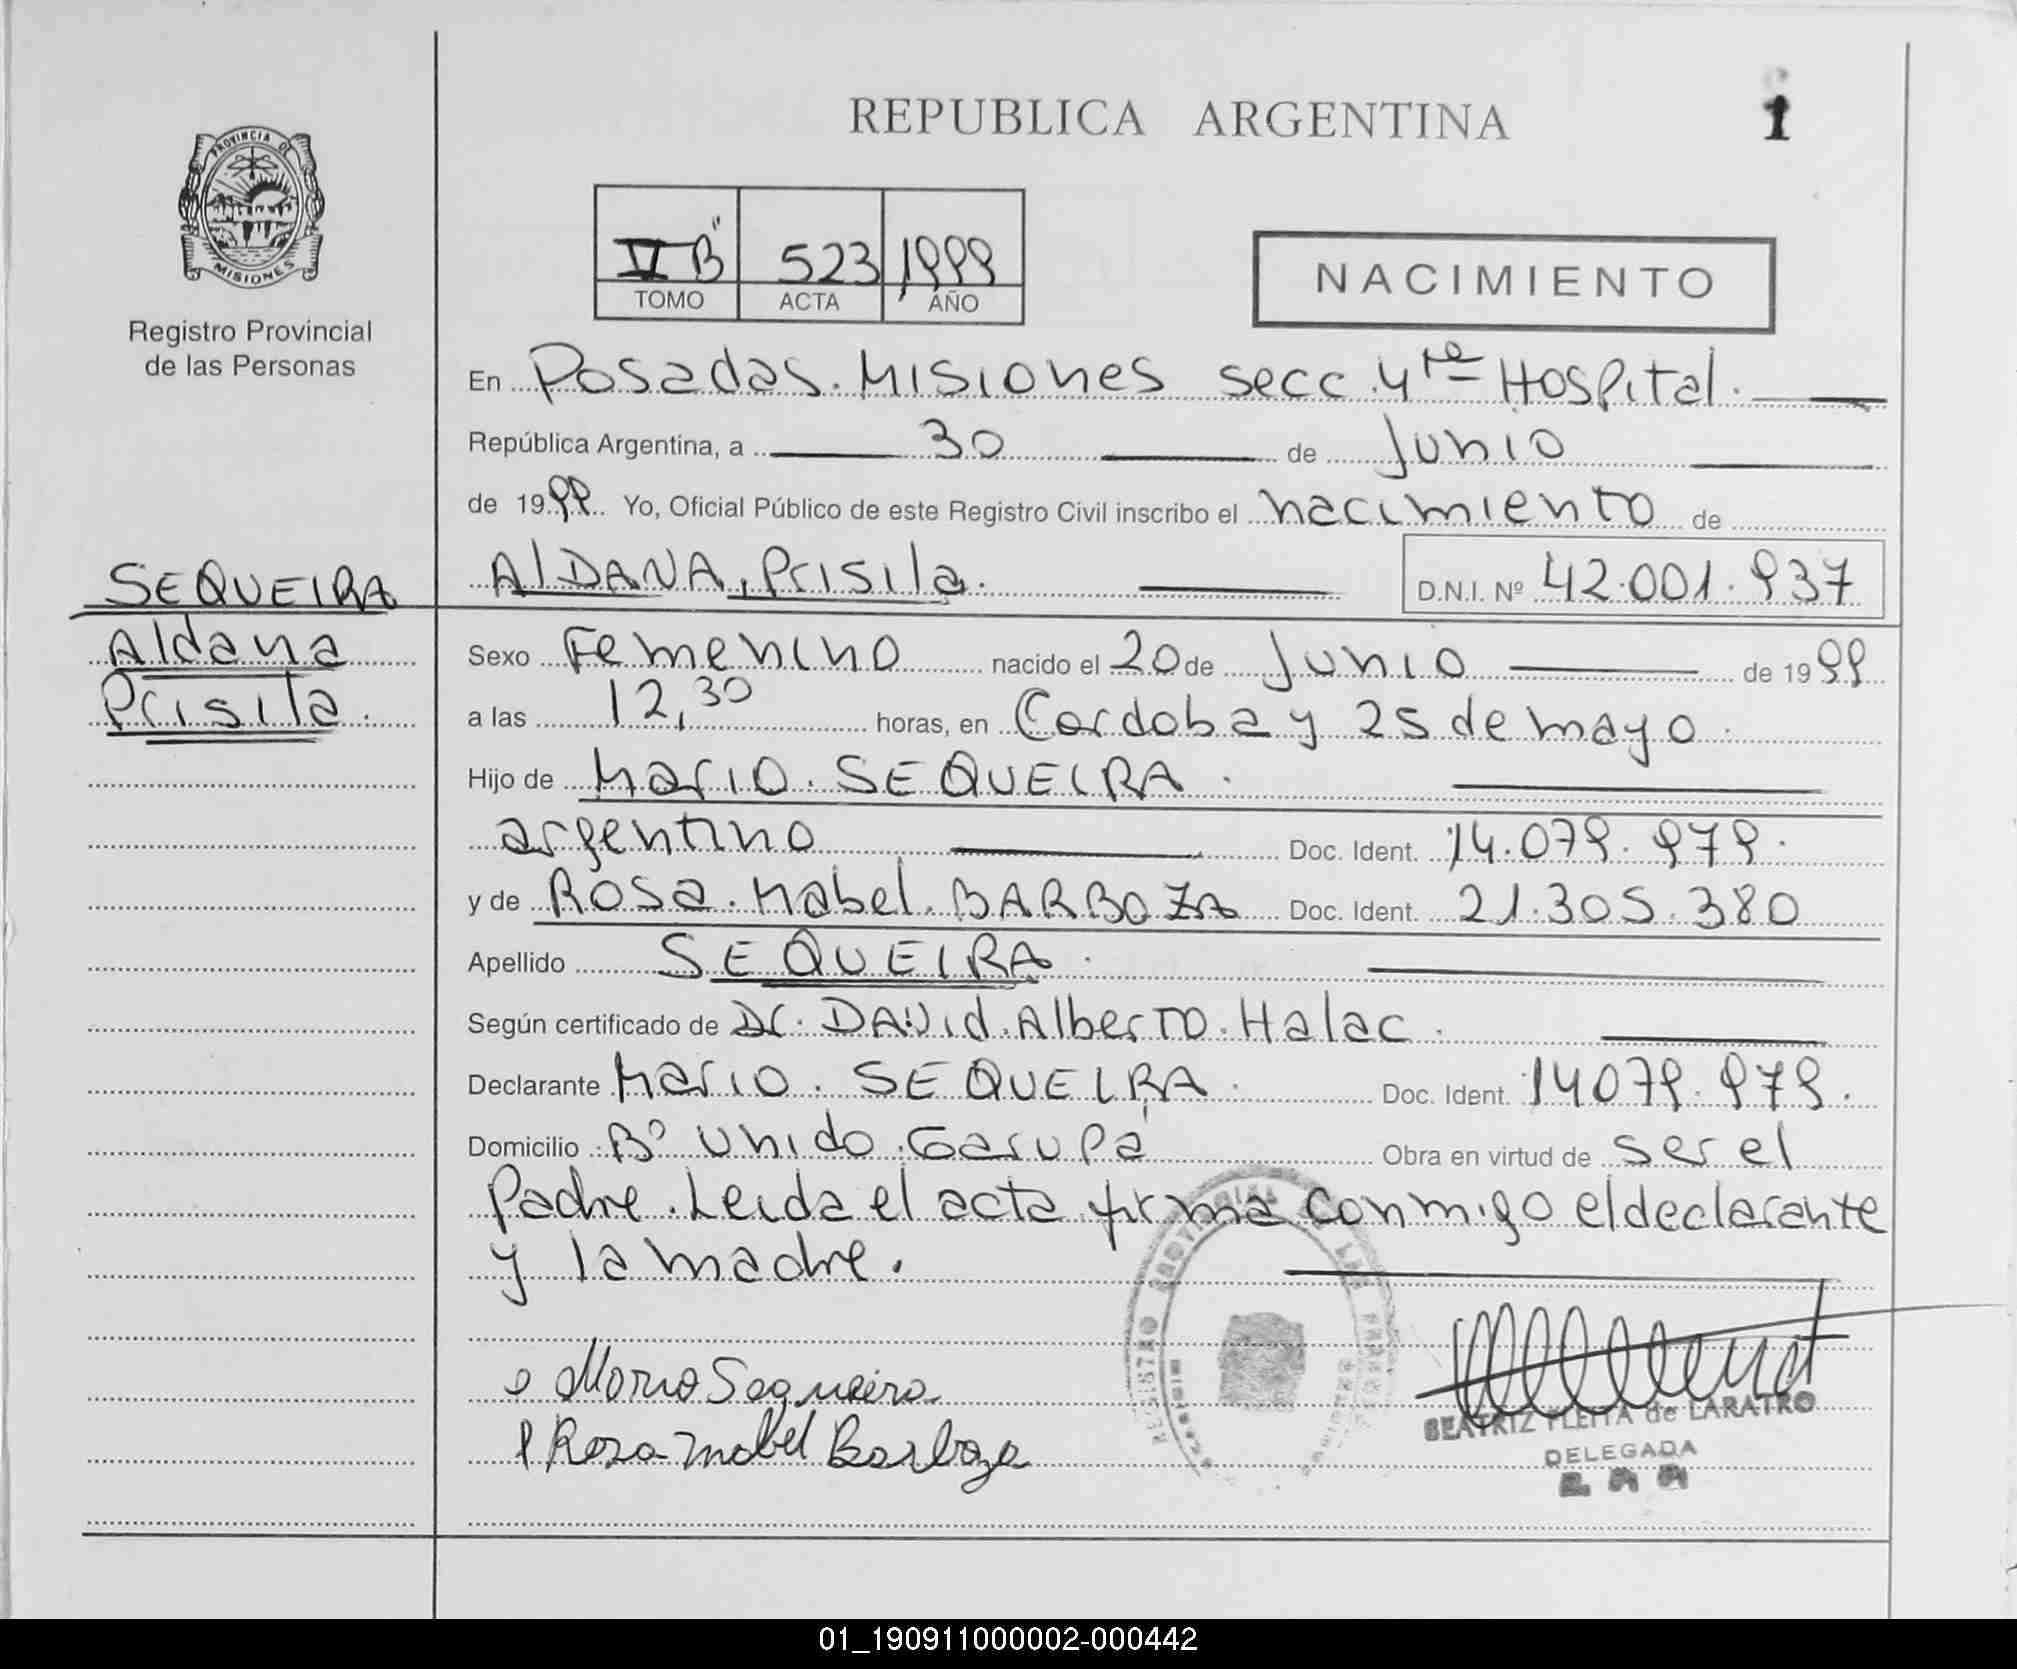 REPUBLICA ARGENTINA
1
PROVINCIA DE
MISIONES
Registro Provincial
de las Personas
V B" 523 1999
TOMO ACTA AÑO
NACIMIENTO
En Posadas. Misiones secc. 4ta Hospital.
República Argentina, a 30 de Junio
de 1999 Yo, Oficial Público de este Registro Civil inscribo el nacimiento de
AlDANA, Prisila. D.N.I. Nº 42.001.937
SEQUEIRA
Aldana
Prisila.
Sexo Femenino nacido el 20 de Junio de 1999
a las 12,30 horas, en Cordoba y 25 de mayo.
Hijo de Mario. SEQUEIRA.
argentino Doc. Ident. 14.079.979.
y de Rosa. Mabel. BARBOZA Doc. Ident. 21.305.380
Apellido SEQUEIRA.
Según certificado de Dr. DAVid. Alberto. Halac.
Declarante Mario. SEQUEIRA. Doc. Ident. 14079.979.
Domicilio Bº Unido. Garupá Obra en virtud de ser el
Padre. Leida el acta firma conmigo el declarante
y la madre.
Mario Sequeira
Rosa Mabel Barboza
BEATRIZ FLEITA de LARATRO
DELEGADA
01_190911000002-000442